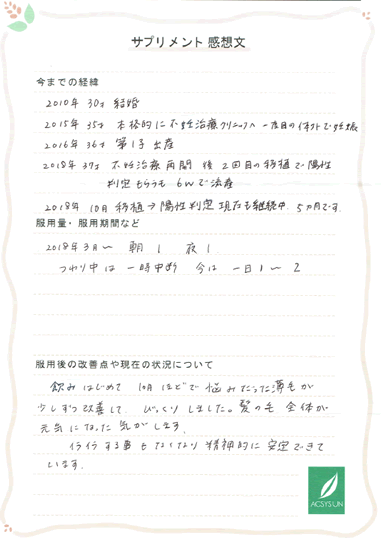 サプリメント 感想文
今までの経緯
2010年 30才 結婚
2015年 35才 本格的に不妊治療クリニックへ 一度目の体外で妊娠
2016年 36才 第1子 出産
2018年 37才 不妊治療再開 後 2回目の移植で陽性
判定もらうも 6wで流産
2018年 10月 移植→陽性判定 現在も継続中. 5ヵ月です.
服用量・服用期間など
2018年3月〜 朝 1 夜 1
つわり中は 一時中断 今は 一日1〜2
服用後の改善点や現在の状況について
飲みはじめて 10月ほどで 悩みだった薄毛が
少しずつ改善して びっくりしました。髪の毛 全体が
元気になった気がします.
イライラする事もなくなり 精神的に 安定できて
います.
ACSYSUN